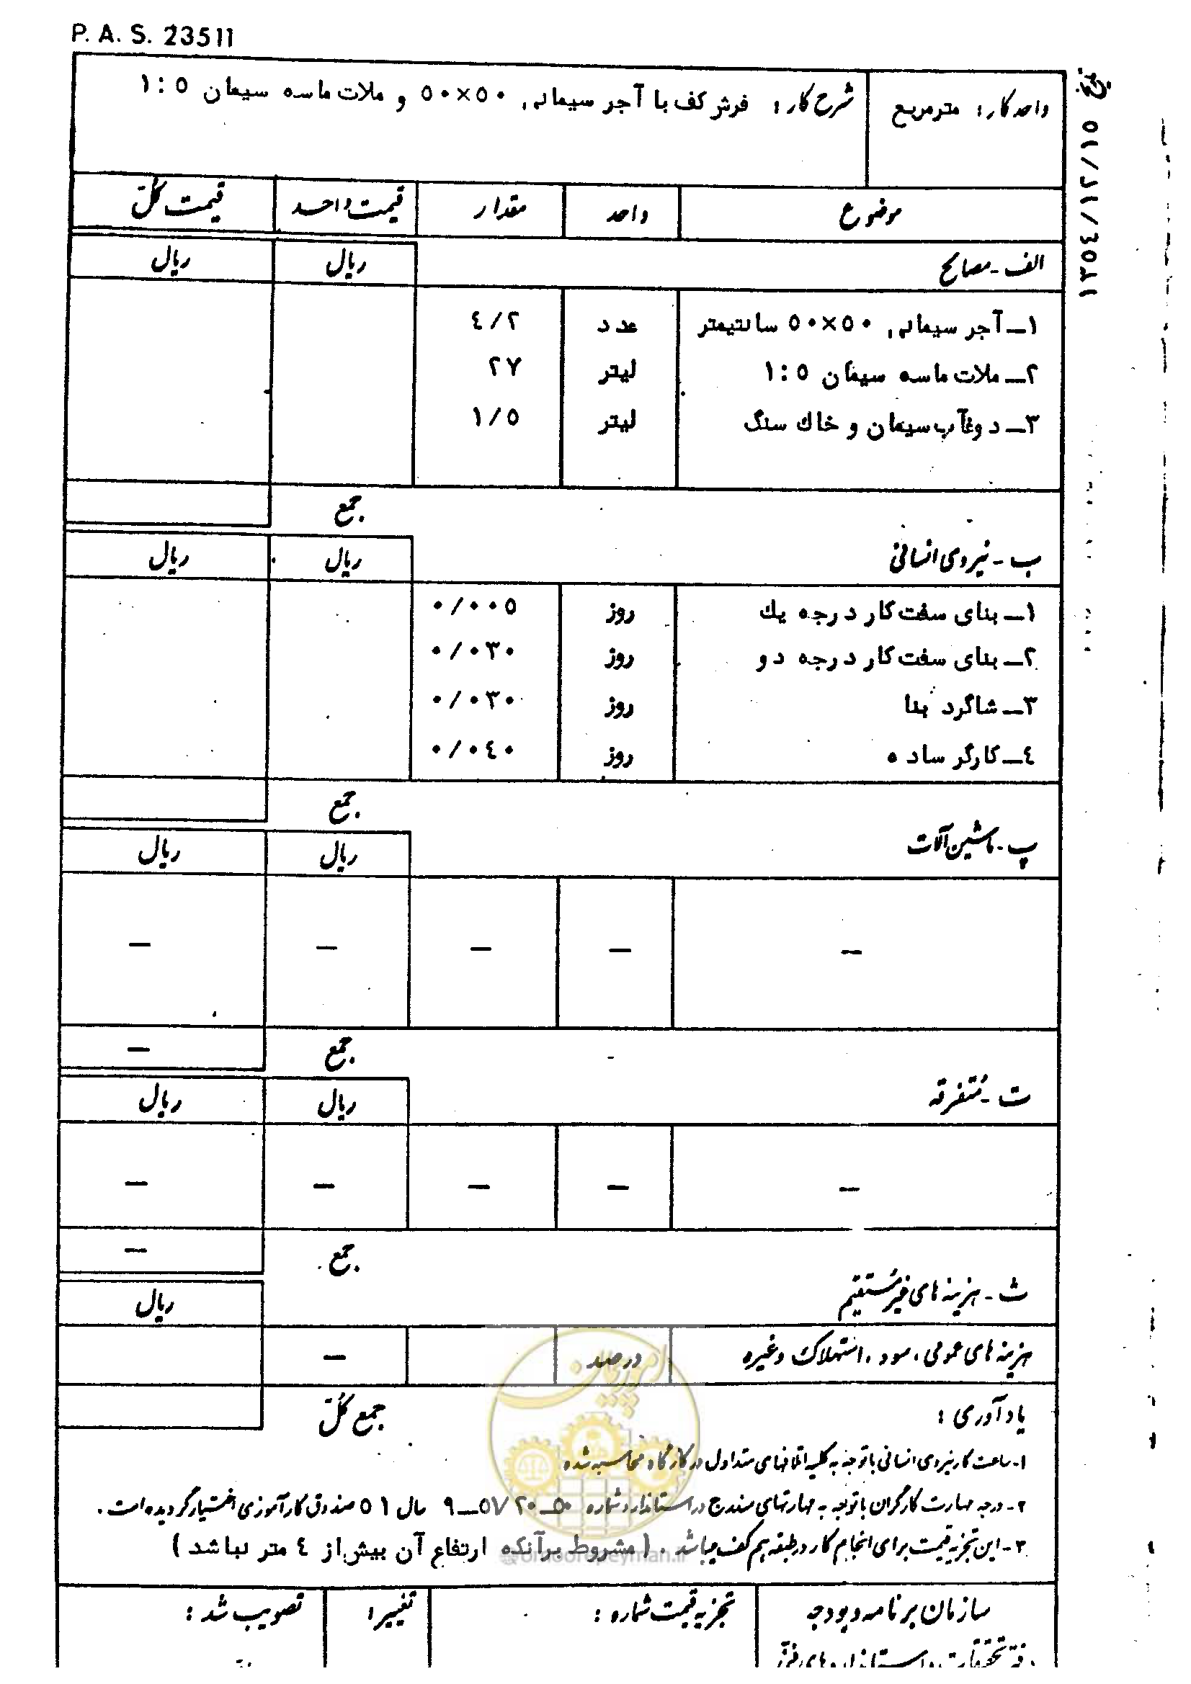 P. A. S. 23511
تاریخ ١٣٥٤/١٢/١٥
واحد کار: مترمربع
شرح کار: فرش کف با آجر سیمانی ٥٠×٥٠ و ملات ماسه سیمان ١:٥
موضوع واحد مقدار قیمت واحد قیمت کل
الف - مصالح ریال ریال
١ــ آجر سیمانی ٥٠×٥٠ سانتیمتر عدد ٤/٢
٢ــ ملات ماسه سیمان ١:٥ لیتر ٢٧
٣ــ دوغآب سیمان و خاك سنگ لیتر ١/٥
جمع
ب - نیروی انسانی ریال ریال
١ــ بنای سفت کار درجه یك روز ٠/٠٠٥
٢ــ بنای سفت کار درجه دو روز ٠/٠٣٠
٣ــ شاگرد بنا روز ٠/٠٣٠
٤ــ کارگر ساده روز ٠/٠٤٠
جمع
پ - ماشین آلات ریال ریال
— — — — —
جمع —
ت - متفرقه ریال ریال
— — — — —
جمع —
ث - هزینه های غیرمستقیم ریال
هزینه های عمومی، سود، استهلاک وغیره درصد —
جمع کل
یادآوری:
١- ساعت کار نیروی انسانی باتوجه به کلیه اتلافهای متداول در کارگاه محاسبه شده
٢- درجه مهارت کارگران باتوجه به مهارتهای مندرج در استاندارد شماره ٥٠ــ٢٠/٥٧ــ٩ سال ٥١ صندوق کارآموزی اختیار گردیده است.
٣- این تجزیه قیمت برای انجام کار درطبقه هم کف میباشد. (مشروط برآنکه ارتفاع آن بیش از ٤ متر نباشد)
امور پیمان
@omooropeyman.ir
سازمان برنامه و بودجه تجزیه قیمت شماره: تغییر: تصویب شد:
دفتر تحقیقات و استانداردهای فنی